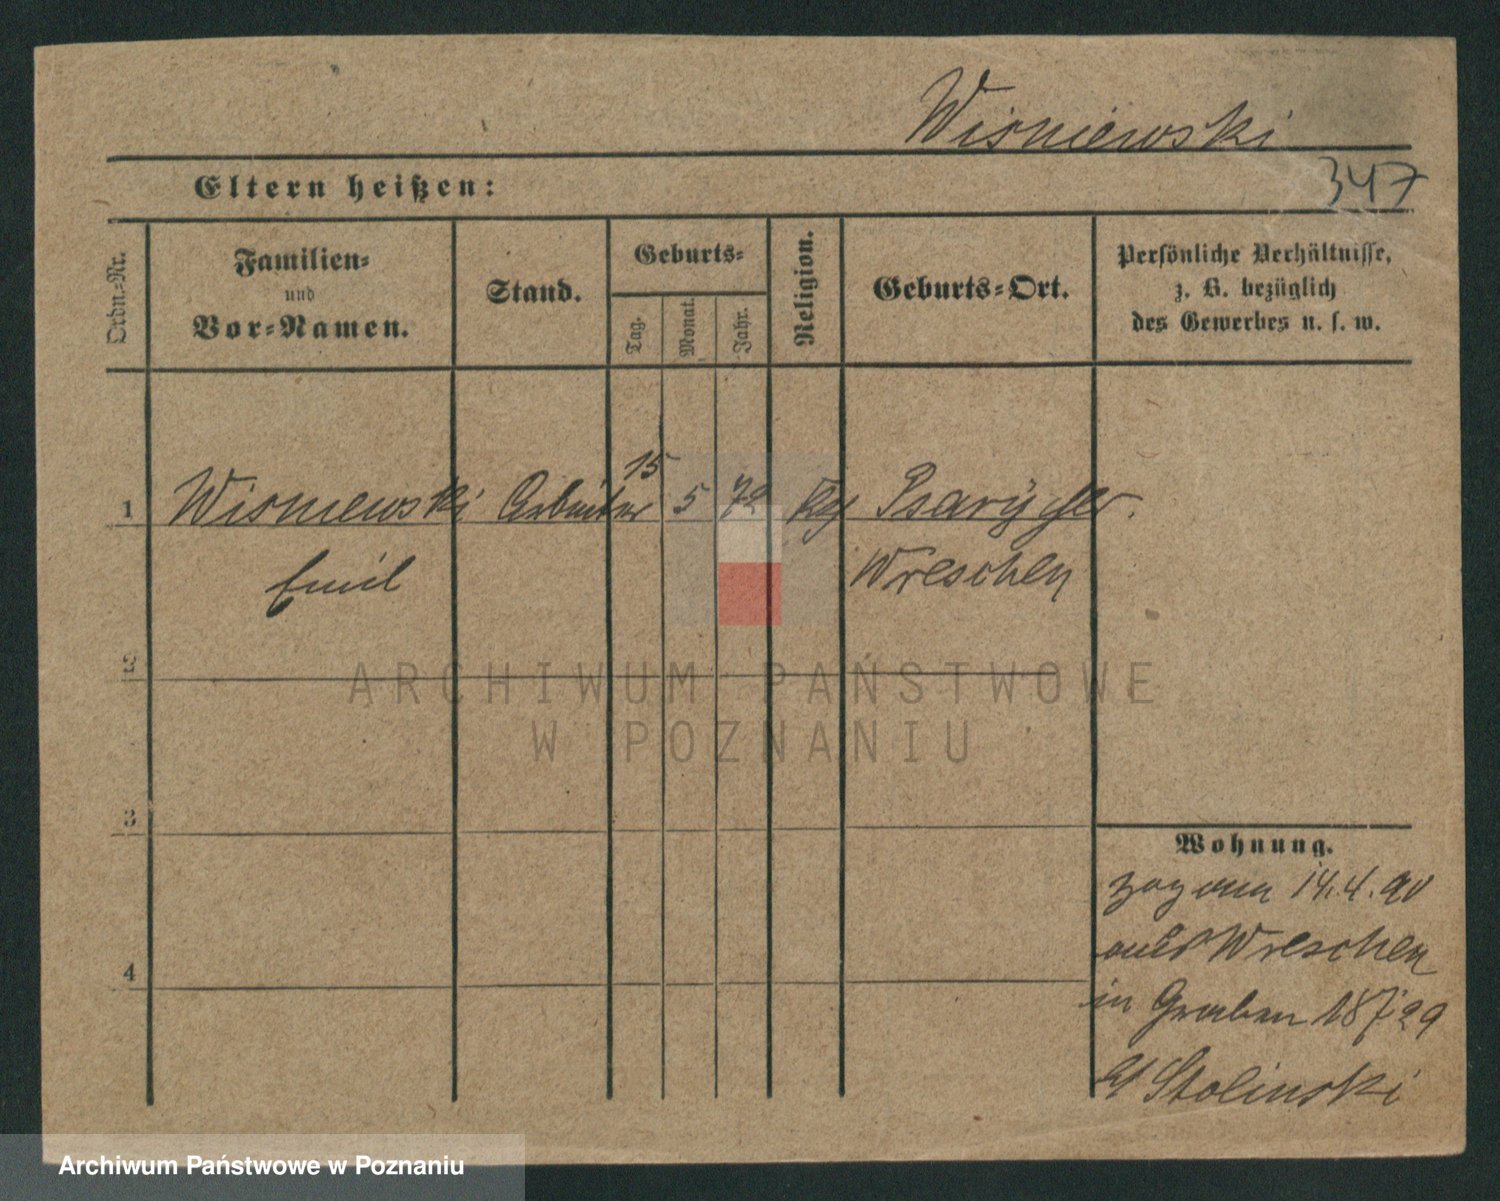 Wisniewski
Eltern heißen:
347
Ordn.-Nr.
Familien-
und
Vor-Namen.
Stand.
Geburts-
Tag.
Monat.
Jahr.
Religion.
Geburts-Ort.
Persönliche Verhältnisse,
z. B. bezüglich
des Gewerbes u. s. w.
1 Wisniewski Arbeiter 15 5 72
Emil Wreschen
2
ARCHIWUM PAŃSTWOWE
W POZNANIU
3
Wohnung.
zog am 14.4.90
aus Wreschen
4
in Graben
Stolinski
Archiwum Państwowe w Poznaniu